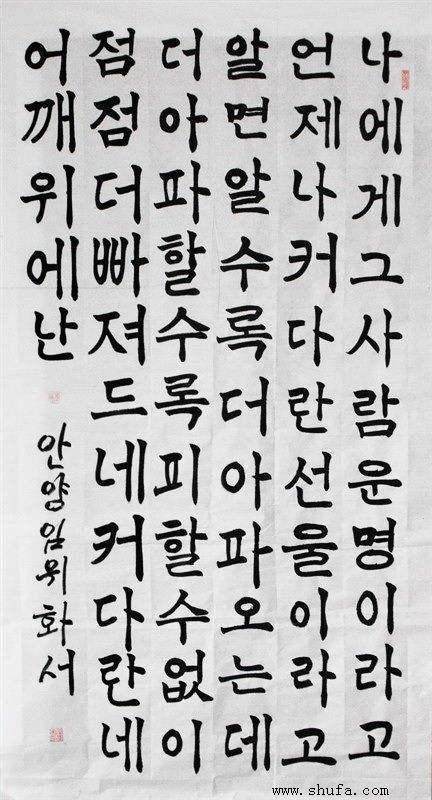 나에게그사람운명이라고
언제나커다란선울이라고
알면알수록더아파오는데
더아파할수록피할수없이
점점더빠져드네커다란네
어깨위에난
안양임위화서
www.shufa.com